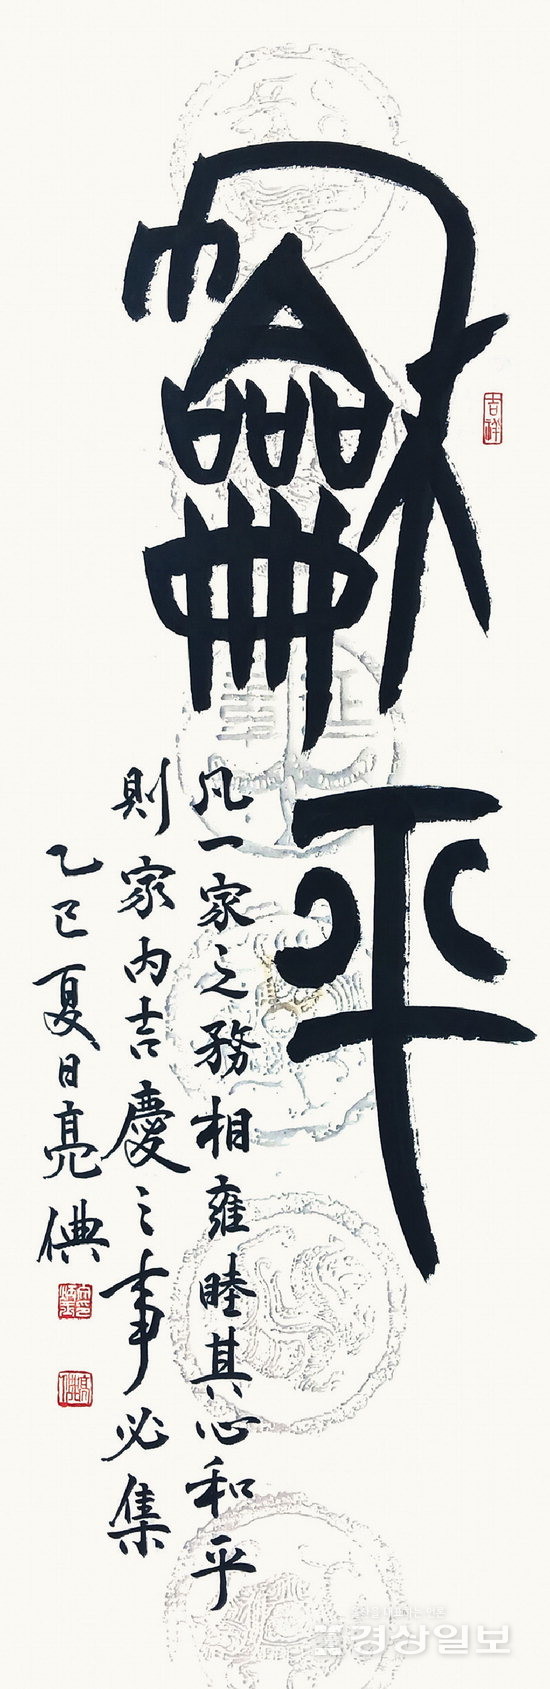 龢平
吉祥
凡一家之務相雍睦其心和平
則家內吉慶之事必集
乙巳夏日亮㒟
경상일보